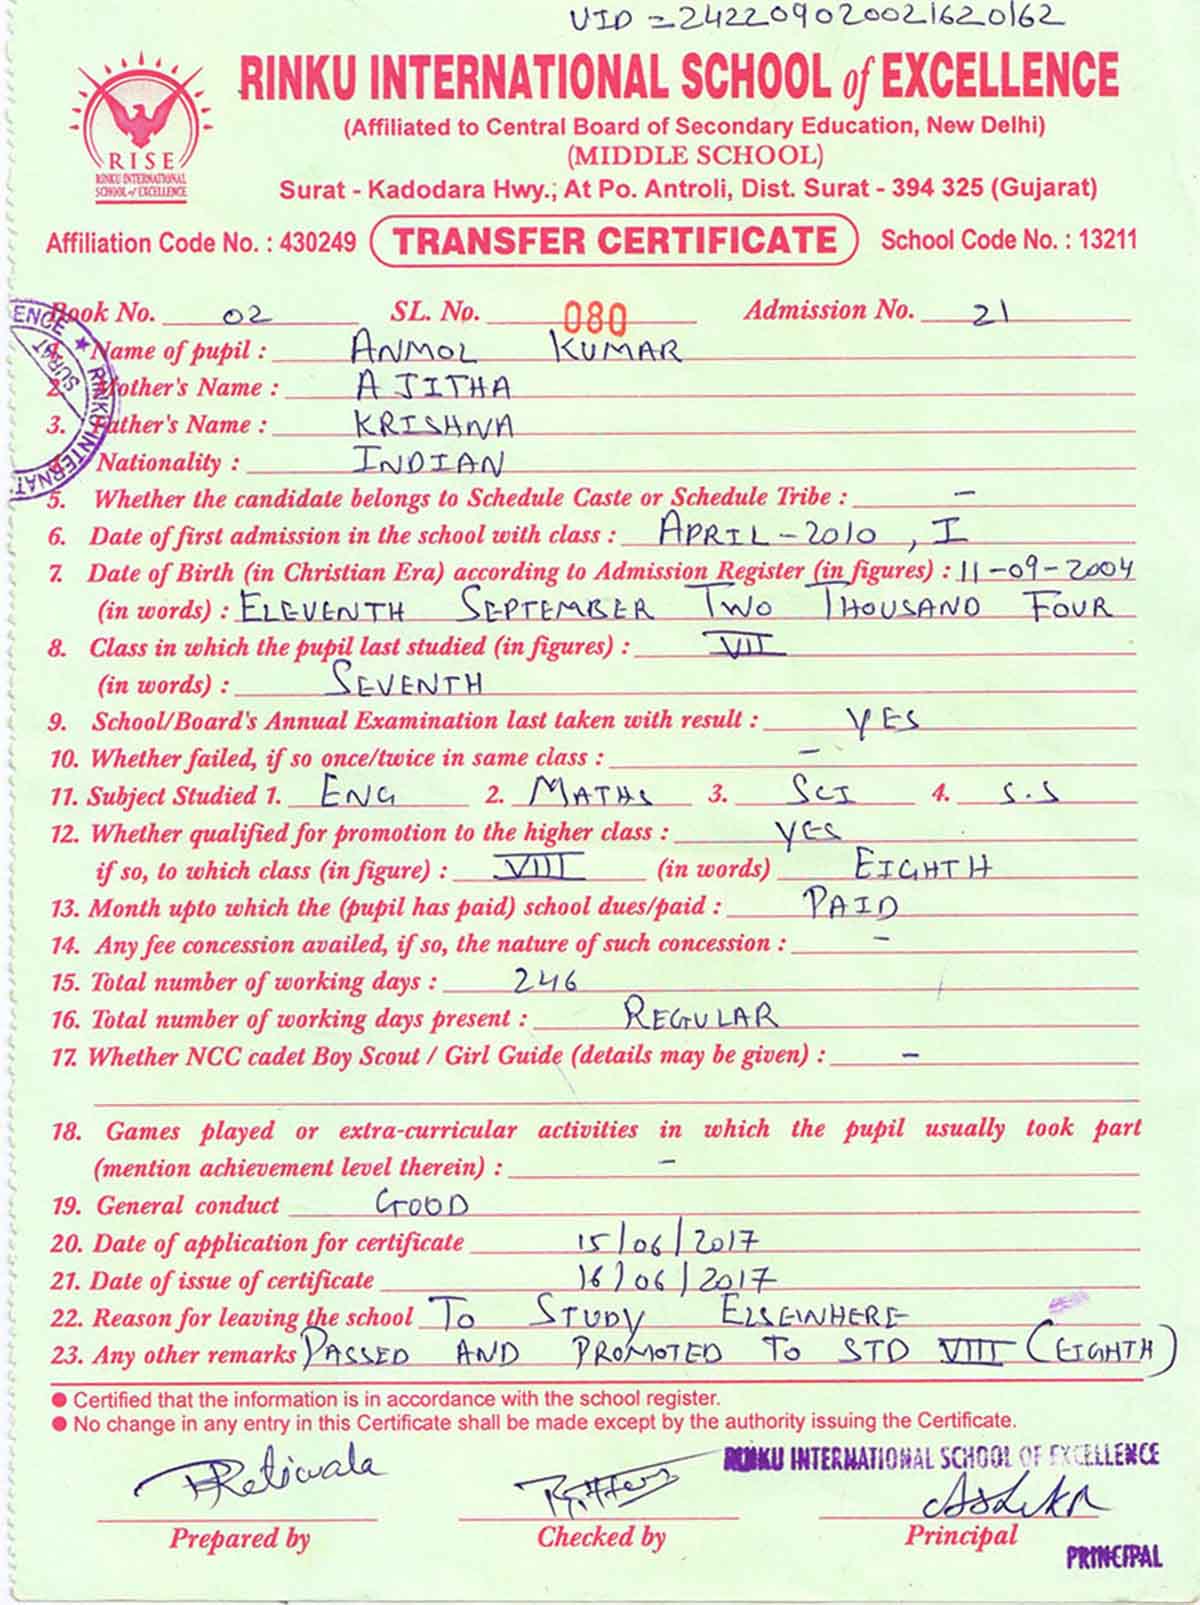 UID = 242209020021620162
RINKU INTERNATIONAL SCHOOL of EXCELLENCE
(Affiliated to Central Board of Secondary Education, New Delhi)
(MIDDLE SCHOOL)
RISE
RINKU INTERNATIONAL
SCHOOL of EXCELLENCE
Surat - Kadodara Hwy.; At Po. Antroli, Dist. Surat - 394 325 (Gujarat)
Affiliation Code No. : 430249 TRANSFER CERTIFICATE School Code No. : 13211
Book No. 02 SL. No. 080 Admission No. 21
1. Name of pupil : ANMOL KUMAR
2. Mother's Name : AJITHA
3. Father's Name : KRISHNA
Nationality : INDIAN
5. Whether the candidate belongs to Schedule Caste or Schedule Tribe : -
6. Date of first admission in the school with class : APRIL - 2010 , I
7. Date of Birth (in Christian Era) according to Admission Register (in figures) : 11-09-2004
(in words) : ELEVENTH SEPTEMBER TWO THOUSAND FOUR
8. Class in which the pupil last studied (in figures) : VII
(in words) : SEVENTH
9. School/Board's Annual Examination last taken with result : YES
10. Whether failed, if so once/twice in same class : -
11. Subject Studied 1. ENG 2. MATHS 3. SCI 4. S.S
12. Whether qualified for promotion to the higher class : YES
if so, to which class (in figure) : VIII (in words) EIGHTH
13. Month upto which the (pupil has paid) school dues/paid : PAID
14. Any fee concession availed, if so, the nature of such concession : -
15. Total number of working days : 246
16. Total number of working days present : REGULAR
17. Whether NCC cadet Boy Scout / Girl Guide (details may be given) : -
18. Games played or extra-curricular activities in which the pupil usually took part
(mention achievement level therein) : -
19. General conduct GOOD
20. Date of application for certificate 15/06/2017
21. Date of issue of certificate 16/06/2017
22. Reason for leaving the school TO STUDY ELSEWHERE
23. Any other remarks PASSED AND PROMOTED TO STD VIII (EIGHTH)
● Certified that the information is in accordance with the school register.
● No change in any entry in this Certificate shall be made except by the authority issuing the Certificate.
RINKU INTERNATIONAL SCHOOL OF EXCELLENCE
Prepared by Checked by Principal
PRINCIPAL